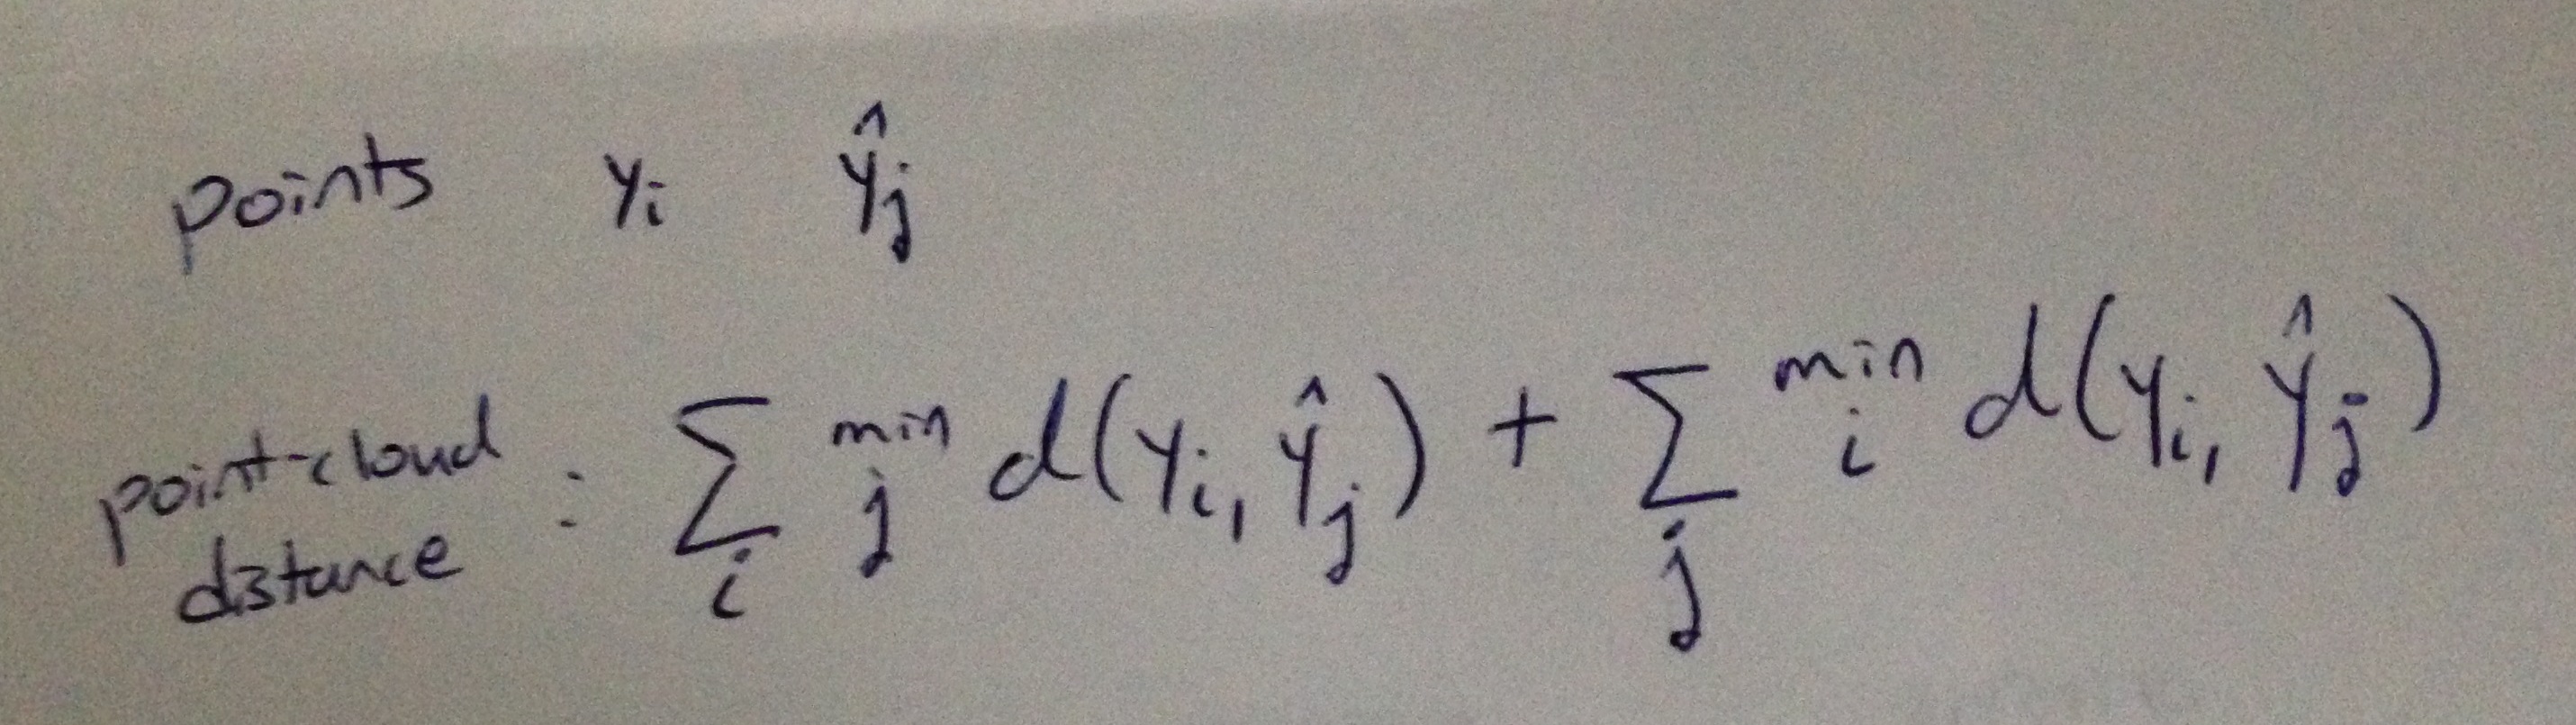 points yᵢ ŷⱼ
point-cloud
distance : ∑ᵢ minⱼ d(yᵢ, ŷⱼ) + ∑ⱼ minᵢ d(yᵢ, ŷⱼ)